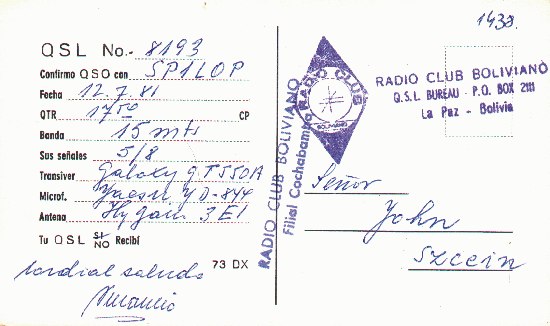 1433.
QSL No.- 8193
Confirmo QSO con SP1LOP
Fecha 12.7.81
QTR 17⁵⁰ CP
Banda 15 mts
Sus señales 5/8
Transiver Galaxy GT550A
Microf. Yaesu YD-844
Antena Hy gain 3 El
Tu QSL SI/NO Recibí
73 DX
cordial saludo
RADIO CLUB BOLIVIANO
Filial Cochabamba
RADIO CLUB
BOLIVIANO
RADIO CLUB BOLIVIANO
Q.S.L. BUREAU - P.O. BOX 2111
La Paz - Bolivia
Señor
John
Szcein